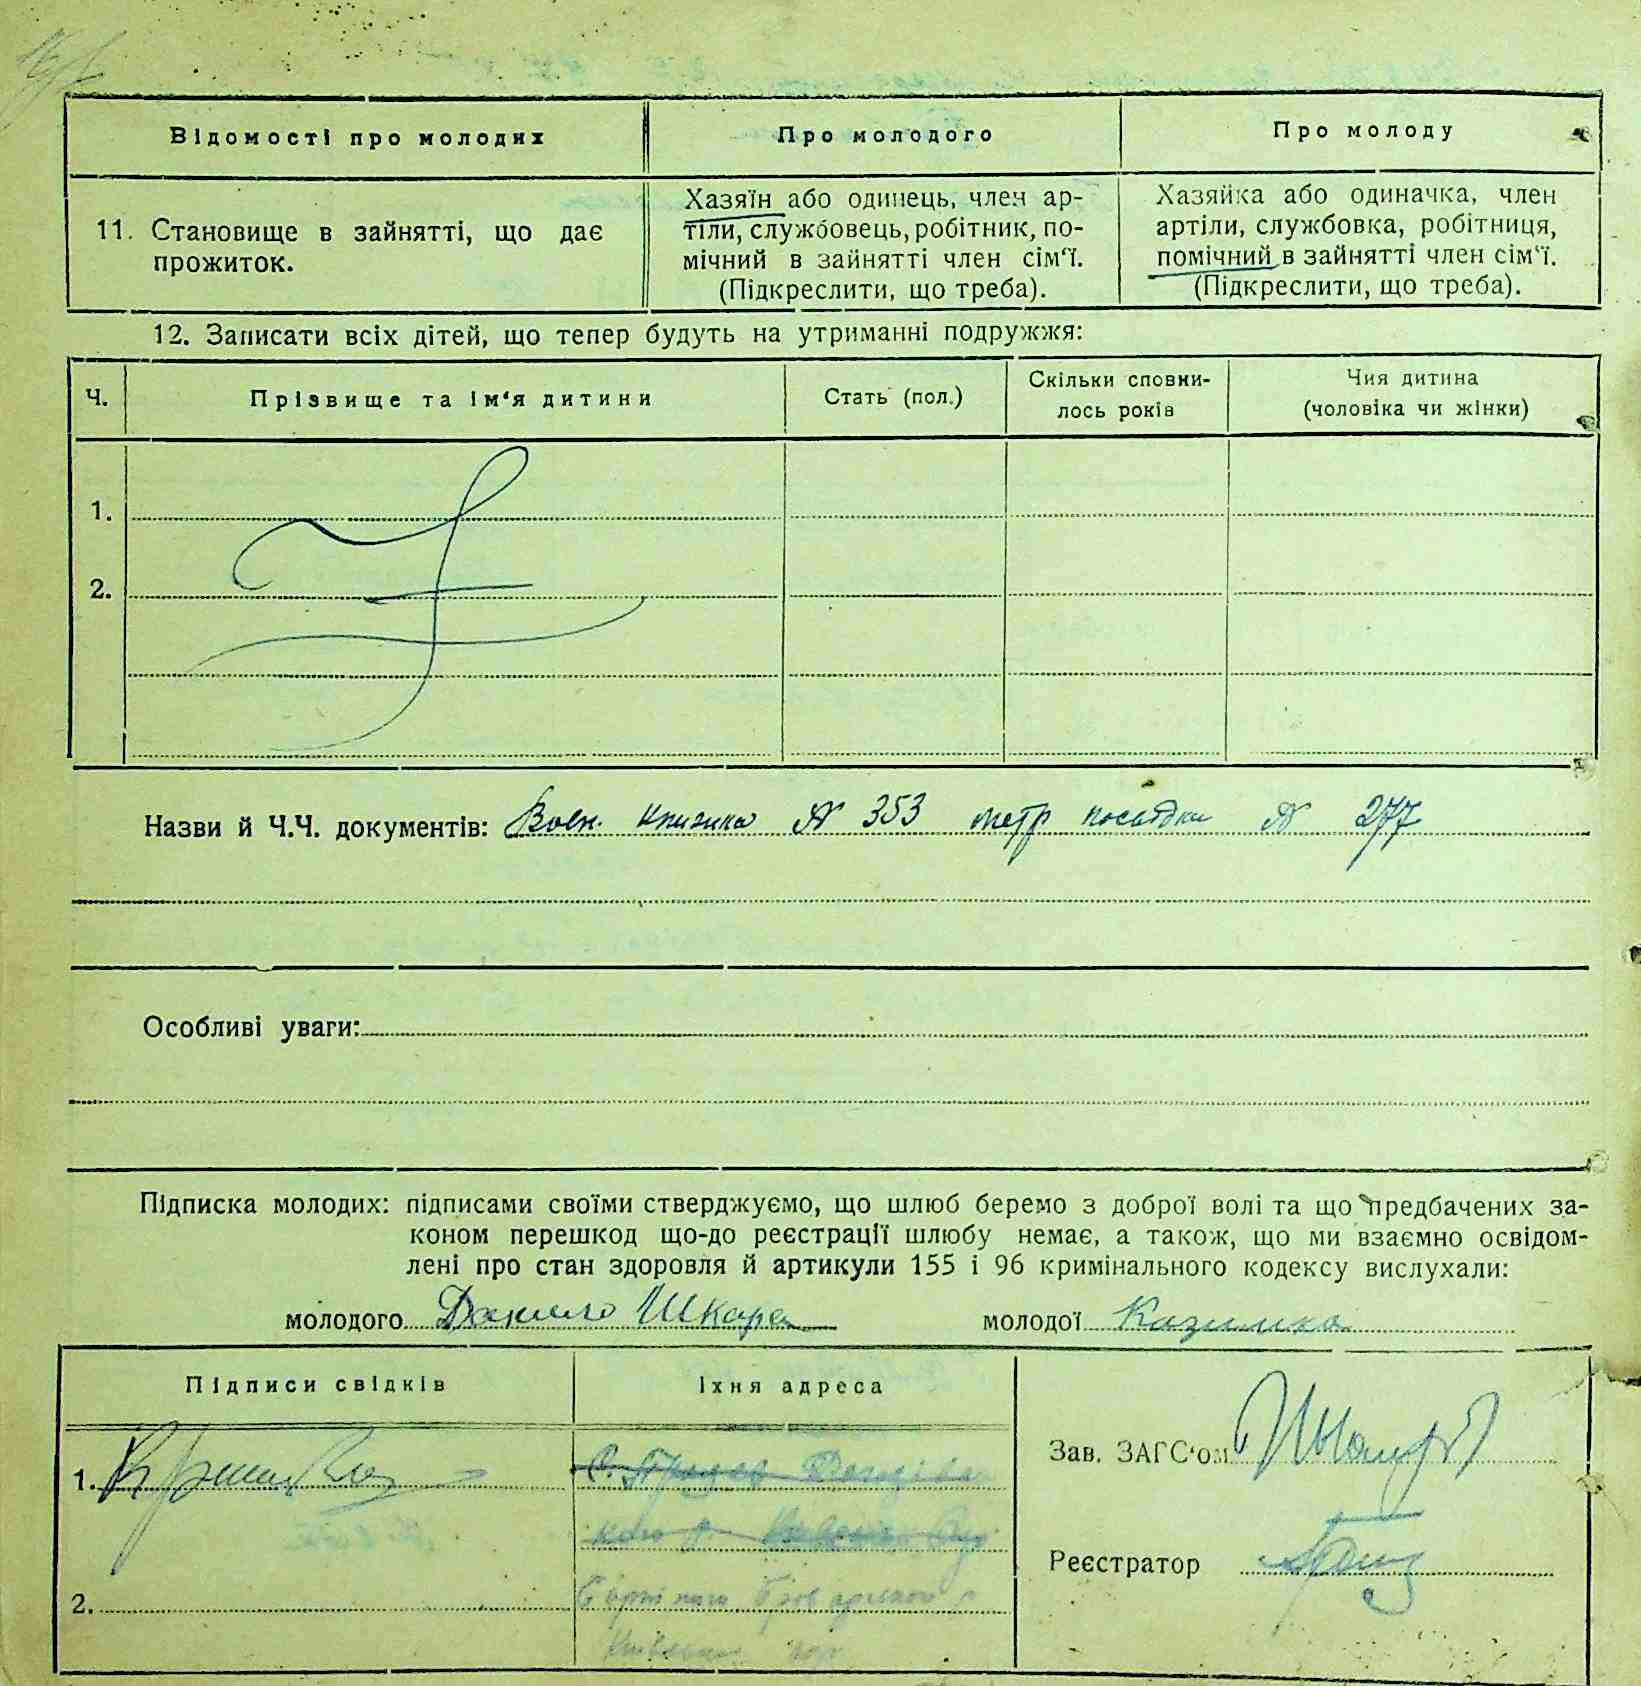 Відомості про молодих
Про молодого
Про молоду
11. Становище в зайнятті, що дає
прожиток.
Хазяїн або одинець, член ар-
тіли, службовець, робітник, по-
мічний в зайнятті член сім‘ї.
(Підкреслити, що треба).
Хазяйка або одиначка, член
артіли, службовка, робітниця,
помічний в зайнятті член сім‘ї.
(Підкреслити, що треба).
12. Записати всіх дітей, що тепер будуть на утриманні подружжя:
Ч.
Прізвище та ім‘я дитини
Стать (пол.)
Скільки сповни-
лось років
Чия дитина
(чоловіка чи жінки)
1.
2.
Назви й Ч.Ч. документів: Воен. книжка № 353 метр № 277
Особливі уваги:
Підписка молодих: підписами своїми стверджуємо, що шлюб беремо з доброї волі та що предбачених за-
коном перешкод що-до реєстрації шлюбу немає, а також, що ми взаємно освідом-
лені про стан здоровля й артикули 155 і 96 кримінального кодексу вислухали:
молодого Данило Шкара молодої
Підписи свідків
Їхня адреса
1.
2.
Зав. ЗАГС‘ом
Реєстратор